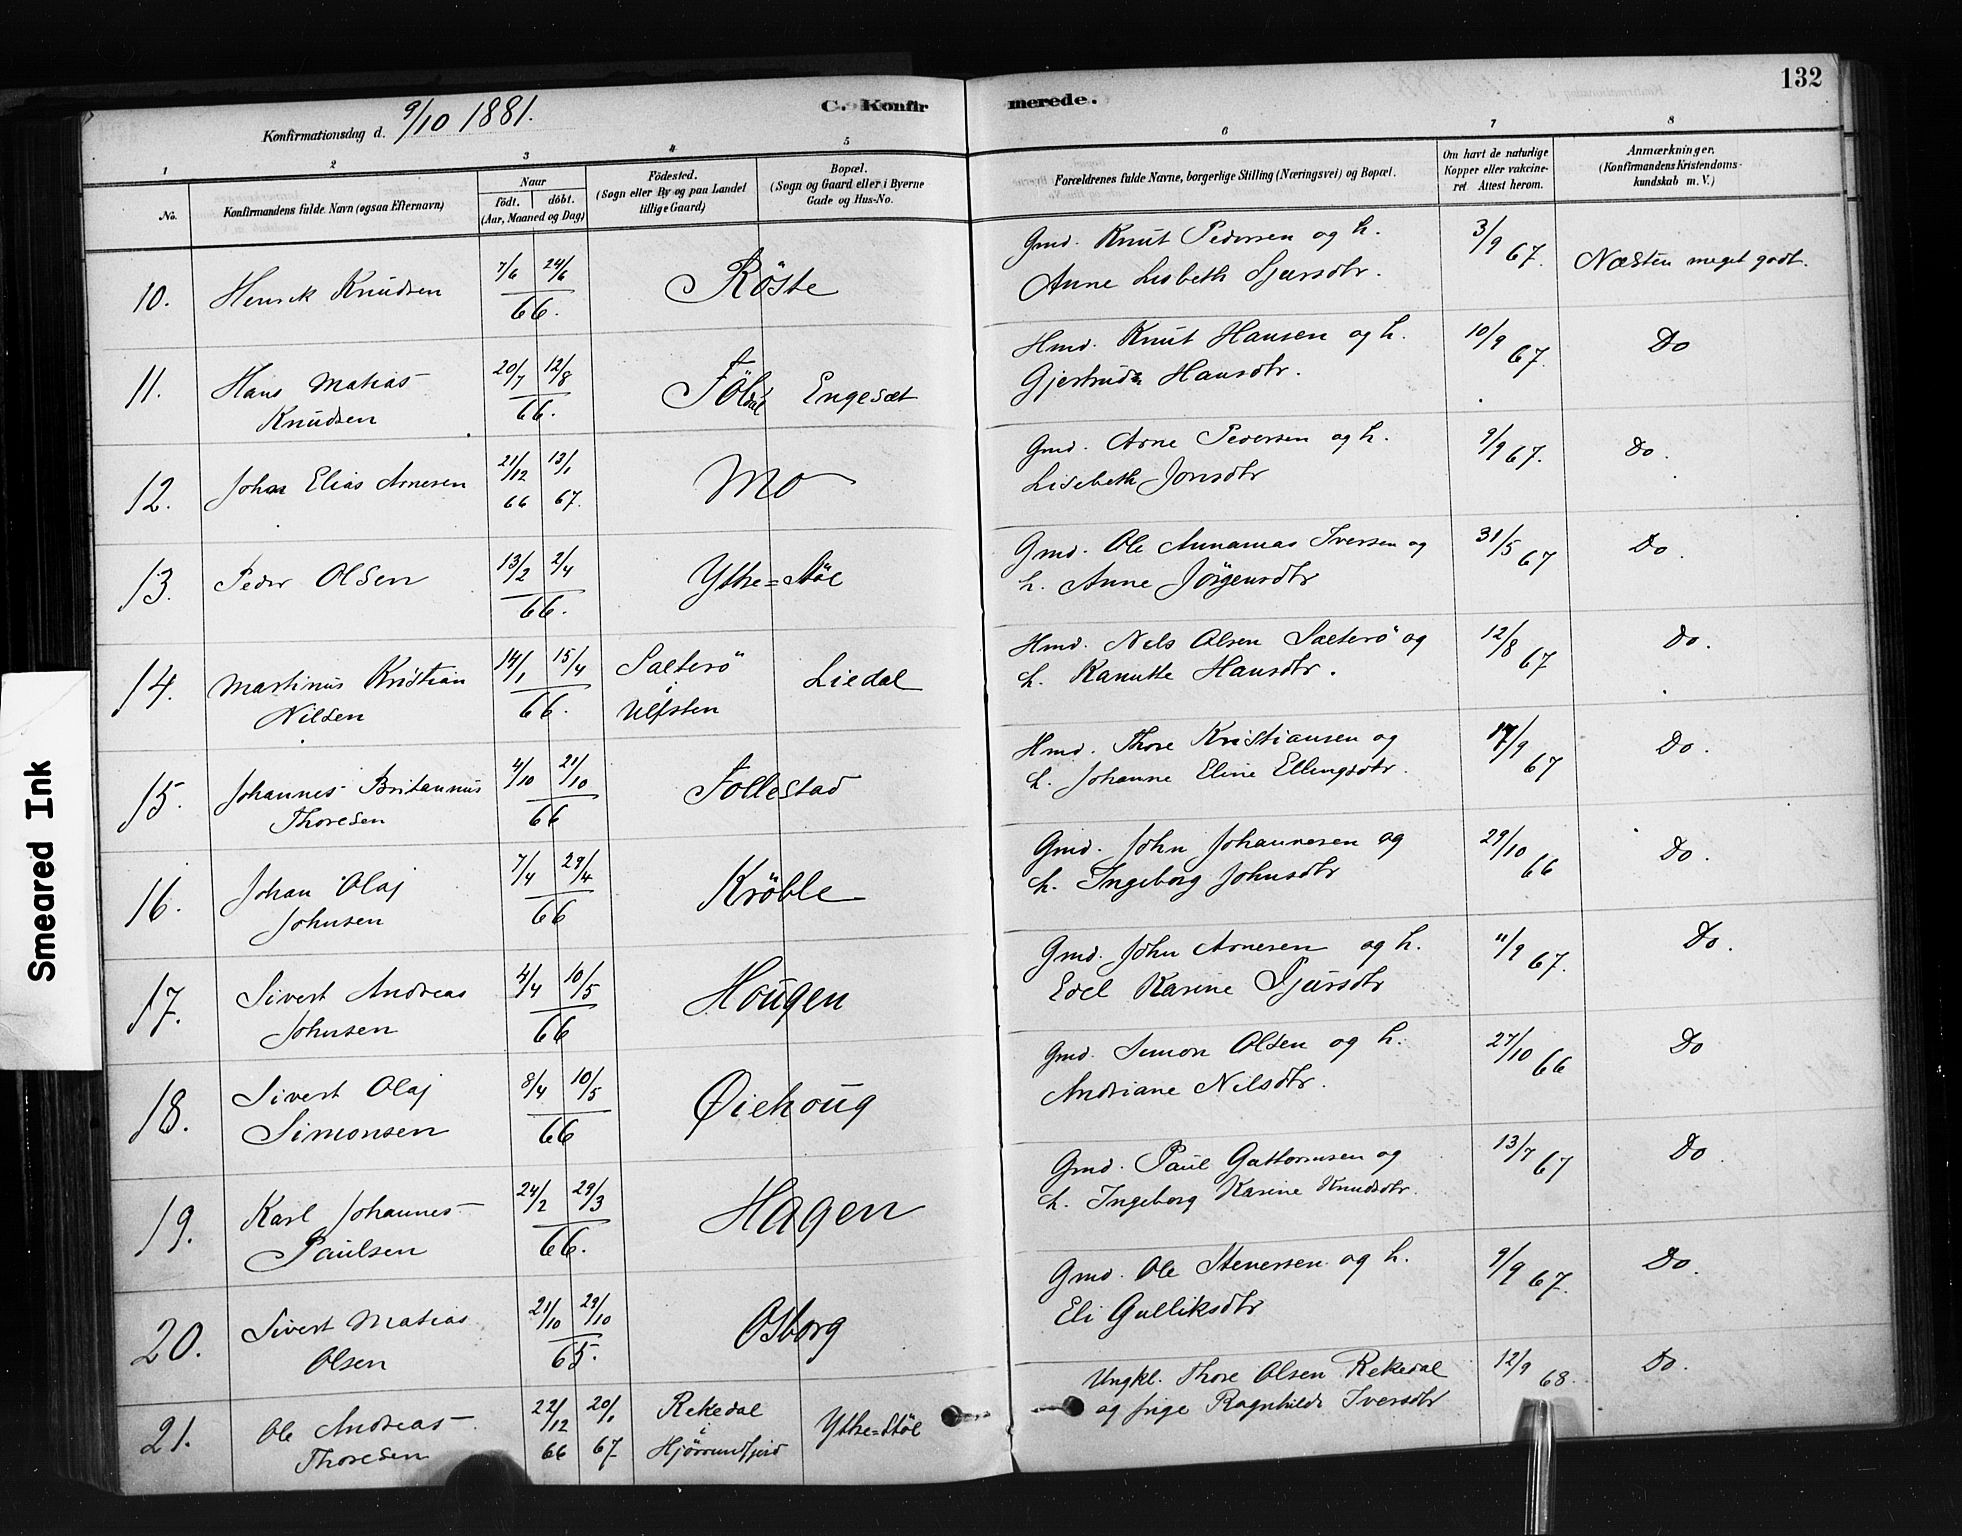 132
C. Konfirmerede.
Konfirmationsdag d. 9/10 1881.
1 2 3 4 5 6 7 8
No.
Konfirmandens fulde Navn (ogsaa Efternavn)
Naar
födt. döbt.
(Aar, Maaned og Dag)
Födested.
(Sogn eller By og paa Landet
tillige Gaard)
Bopæl.
(Sogn og Gaard eller i Byerne
Gade og Hus-No.
Forældrenes fulde Navne, borgerlige Stilling (Næringsvei) og Bopæl.
Om havt de naturlige
Kopper eller vakcine-
ret. Attest herom.
Anmærkninger.
(Konfirmandens Kristendoms-
kundskab m. V.)
10. Henrik Knudsen 7/6 24/6 66. Röste
Gmd. Knut Pedersen og h.
Anne Lisbeth Sjursdtr. 3/9 67. Næsten meget godt.
11. Hans Matias
Knudsen 20/7 12/8 66. Engeset
Hmd. Knut Hansen og h.
Gjertrude Hansdtr. 10/9 67. Do
12. Johan Elias Arnesen 21/12 66 13/1 67. Mo
Gmd. Arne Pedersen og h.
Lisebeth Jonsdtr 9/9 67. Do.
13. Peder Olsen 13/2 2/4 66. Ythre=Støl
Gmd. Ole Annanias Iversen og
h. Anne Jörgensdtr 31/5 67 Do.
14. Martinus Kristian
Nilsen 14/1 15/4 66. Sæterö
i
Ulfsten Liedal
Hmd. Nels Olsen Sæterö og
h. Kanutte Hansdtr. 12/8 67 Do.
15. Johannes Britannus
Thoresen 4/10 21/10 66 Follestad
Hmd. Thore Kristiansen og
h. Johanne Eline Ellingsdtr. 17/9 67 Do.
16. Johan Olaj
Johnsen 7/4 29/4 66 Kröble
Gmd. John Johannesen og
h. Ingeborg Johnsdtr 29/10 66 Do.
17. Sivert Andreas
Johnsen 4/4 10/5 66 Hougen
Gmd. John Arnesen og h.
Edel Karine Sjursdtr 11/9 67. Do.
18. Sivert Olaj
Simonsen 8/4 10/5 66 Øiehoug
Gmd. Simon Olsen og h.
Andriane Nilsdtr. 27/10 66 Do
19. Karl Johannes
Paulsen 24/2 29/3 66. Hagen
Gmd. Paul Guttormsen og
h. Ingeborg Karine Knudsdtr. 13/7 67 Do.
20. Sivert Matias
Olsen 21/10 29/10 65. Osborg
Gmd. Ole Stenersen og h.
Eli Gulliksdtr 9/9 67. Do.
21. Ole Andreas
Thoresen 22/12 66 20/1 67 Rekedal
i
Hjörrundfjord Ythre=Støl
Ungkl. Thore Olsen Rekedal
og pige Ragnhilde Iversdtr 12/9 68. Do.
Smeared Ink